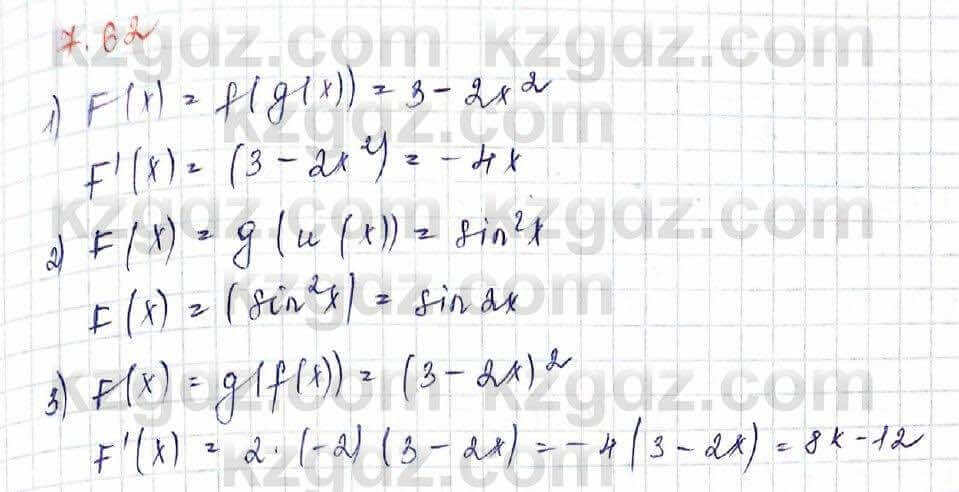 7.62
kzgdz.com kzgdz.com
1) F(x) = f(g(x)) = 3 - 2x²
kzgdz.com
F'(x) = (3 - 2x²) = -4x
kzgdz.com kzgdz.com
2) F(x) = g(u(x)) = sin²x
kzgdz.com
F(x) = (sin²x) = sin 2x
kzgdz.com kzgdz.com
3) F(x) = g(f(x)) = (3 - 2x)²
F'(x) = 2·(-2)(3 - 2x) = -4(3 - 2x) = 8x - 12
kzgdz.com